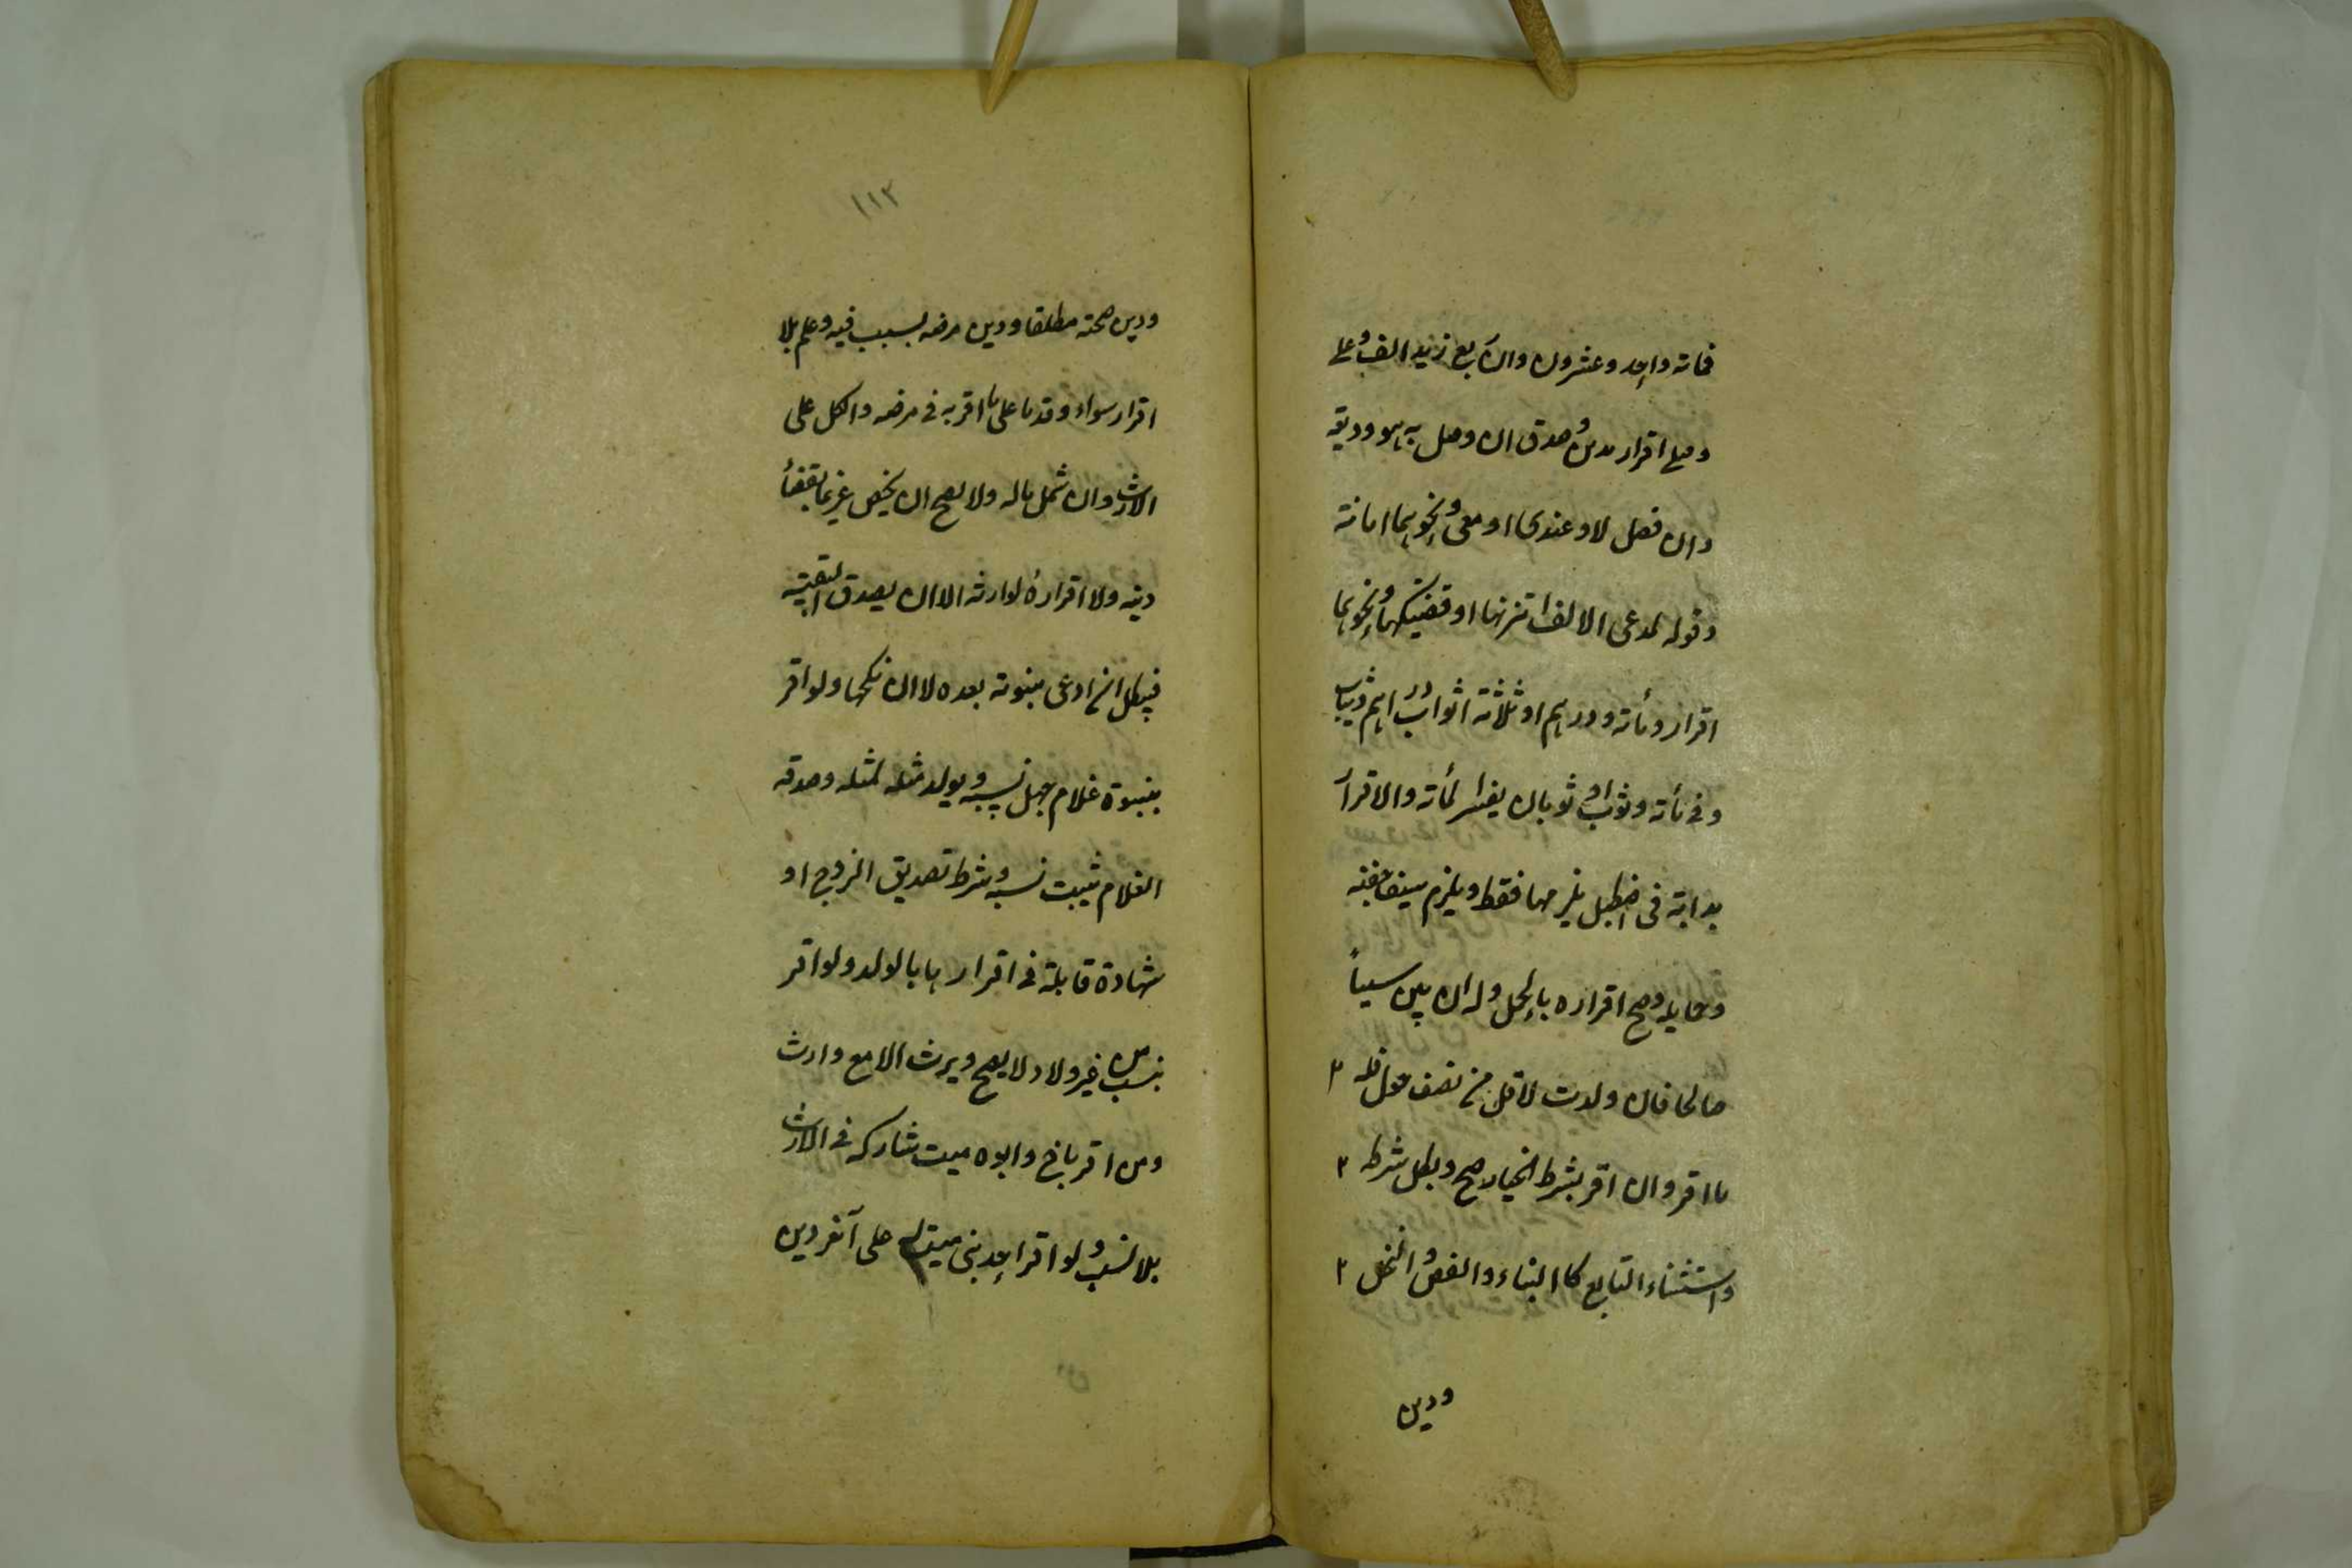 فمائة واحد وعشرون وان ربع زيد الف وعلى
وقبلي اقرار بدين وصدق ان وصل به هو وديعة
وان فصل لا وعندي او معي ونحوهما امانة
وقوله لمدعي الالف اتزنها او قضيتكها ونحوهما
اقرار ومائة ودرهم او ثلاثة اثواب دراهم وثياب
وفي مائة وثوب او ثوبان يفسر المائة والاقرار
بدابة في اصطبل يلزمها فقط ويلزم سيف جفنه
وحمايله وصح اقراره بالحمل وله ان بين سببا
صالحا فان ولدت لاقل من نصف حول فله
ما اقر وان اقر بشرط الخيار صح وبطل شرطه
واستثناء التابع كالبناء والفص والنخل
ودين
١١٢
ودين صحته مطلقا ودين مرضه بسبب فيه وعلم بلا
اقرار سواء وقدما على ما اقر به في مرضه والكل على
الارث وان شمل ماله ولا يصح ان يخص غريما بقضاء
دينه ولا اقراره لوارثه الا ان يصدق البقية
فيبطل ان ادعى بنوته بعده لا ان نكحها ولو اقر
ببنوة غلام جهل نسبه ويولد مثله لمثله وصدقه
الغلام ثبت نسبه وشرط تصديق الزوج او
شهادة قابلة في اقرارها بالولد ولو اقر
بنسب من غير ولاد لا يصح ويرث الا مع وارث
ومن اقر باخ وابوه ميت شاركه في الارث
بلا نسب ولو اقر احد بني ميت له على آخر دين